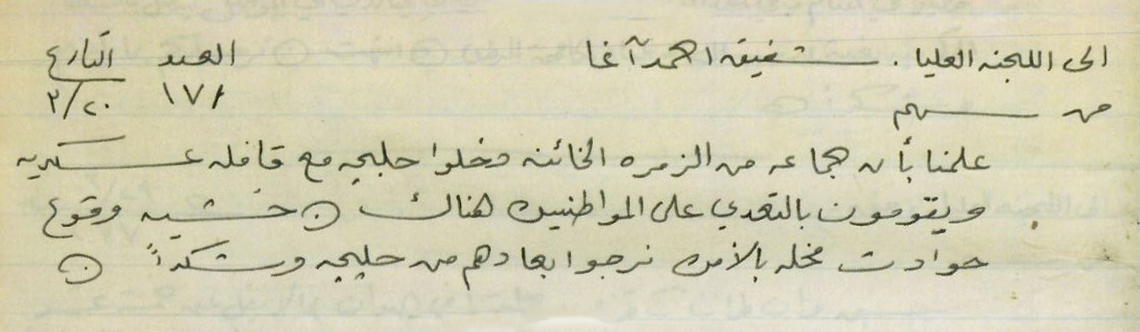 الى اللجنه العليا . شفيقه احمد آغا العدد التاريخ
من سهم ١٧٦ ٢٠/٢
علمنا بأن جماعه من الزمره الخائنه دخلوا حلبجه مع قافله عسكريه
ويقومون بالتعدي على المواطنين هناك ن خشيه وقوع
حوادث مخله بالأمن نرجو ابعادهم من حلبجه وشكراً ن